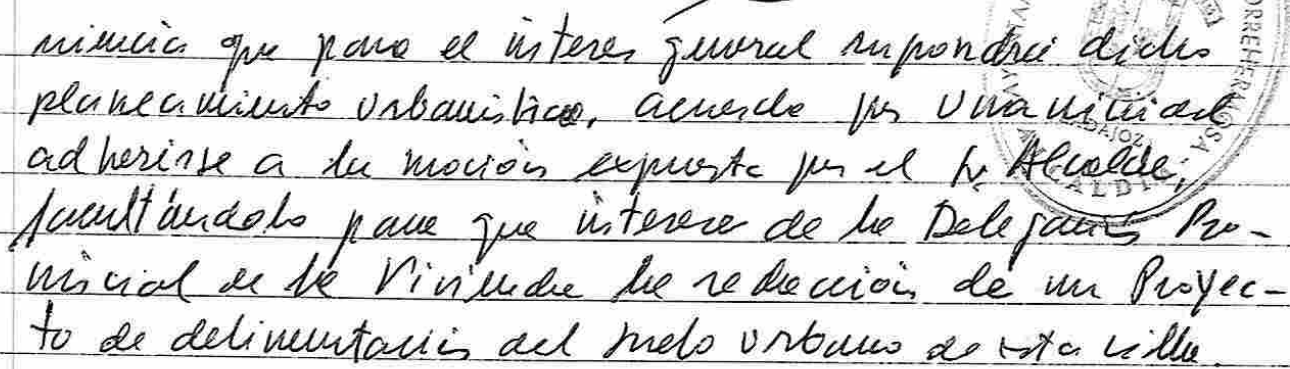 niencia que para el interes general supondrá dicho
planeamiento urbanistico, acuerda por unanimidad
adherirse a la moción expuesta por el Sr. Alcalde,
facultándolo para que interese de la Delegación Pro-
vincial de la Vivienda la redacción de un Proyec-
to de delimentación del suelo urbano de esta villa.
TORREHERMOSA
BADAJOZ
ALCALDIA